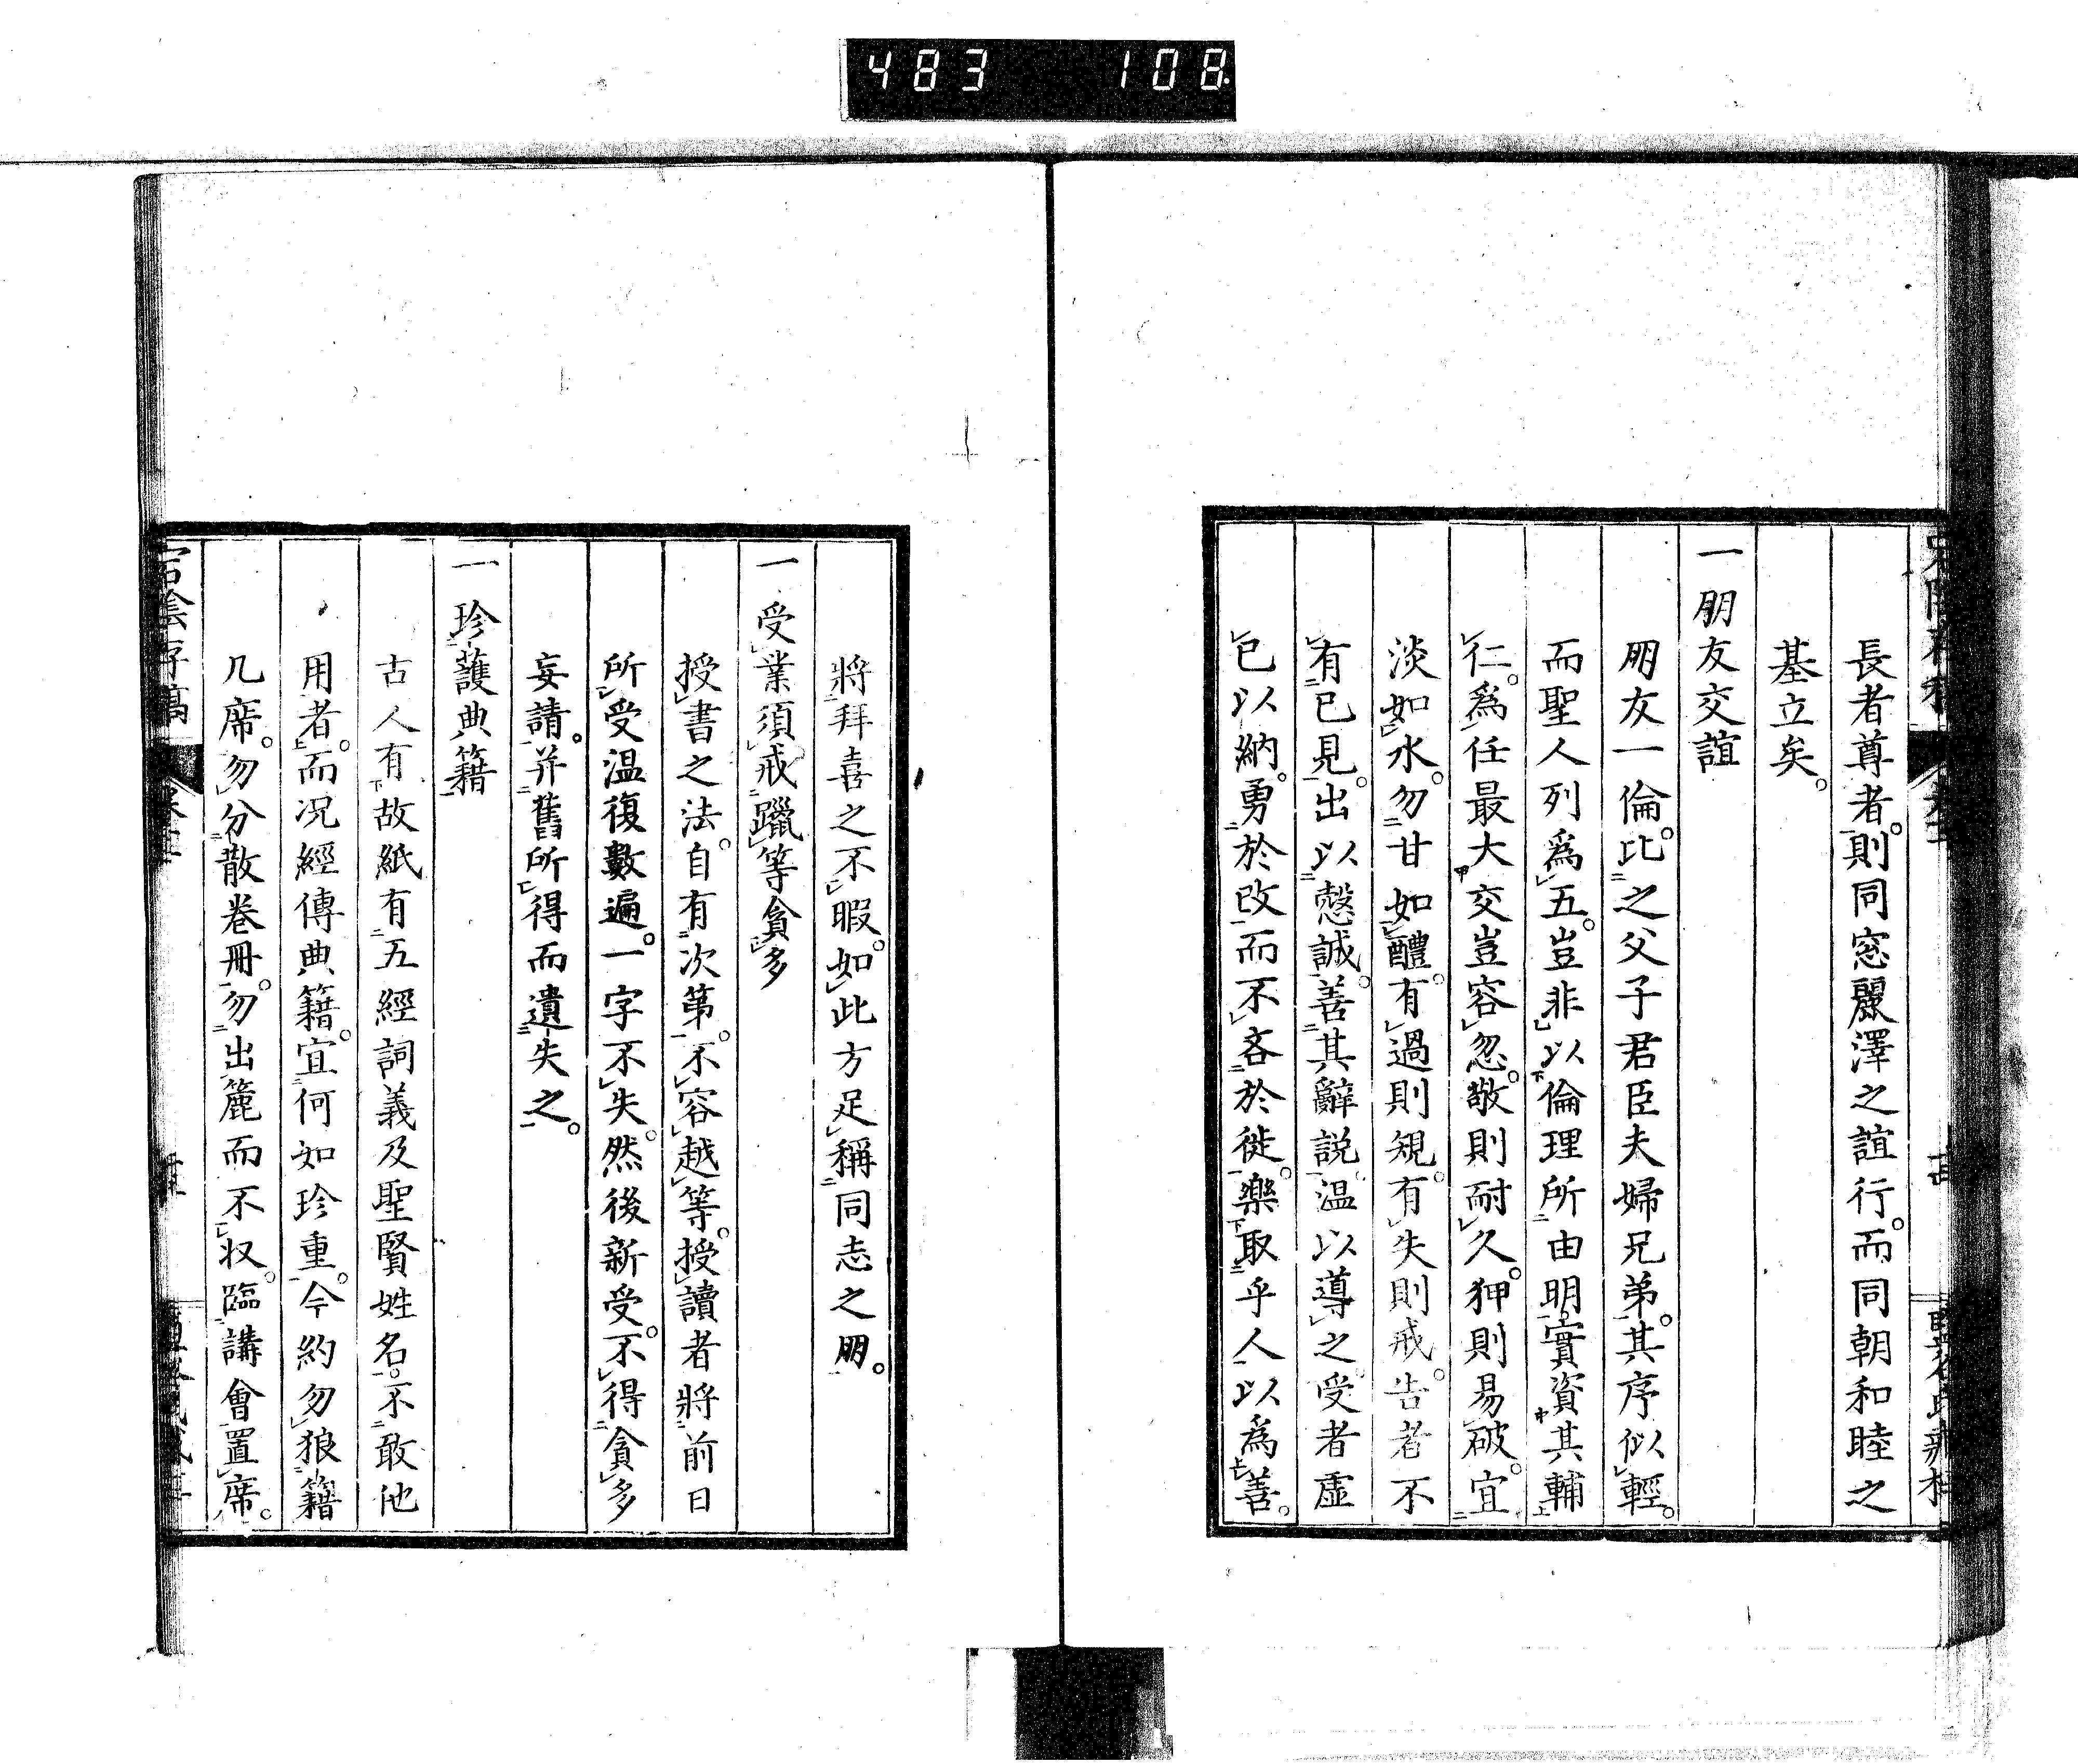 483 108
長者尊者。則同窓麗澤之誼行。而同朝和睦之
基立矣。
一朋友交誼
朋友一倫。比之父子君臣夫婦兄弟。其序似輕。
而聖人列爲五。豈非以倫理所由明實資其輔
仁。爲任最大交豈容忽。敬則耐久。狎則易破。宜
淡如水。勿甘如醴。有過則規。有失則戒。告者不
有已見。出以慤誠。善其辭説。温以導之。受者虛
已以納。勇於改而不吝於徙。樂取乎人以爲善。
將拜喜之不暇。如此方足稱同志之朋。
一受業須戒躐等貪多
授書之法。自有次第。不容越等。授讀者將前日
所受温復數遍。一字不失。然後新受。不得貪多
妄請。并舊所得而遺失之。
一珍護典籍
古人有故紙有五經詞義及聖賢姓名。不敢他
用者。而況經傳典籍。宜何如珍重。今約勿狼籍
几席。勿分散卷冊。勿出簏而不収。臨講會置席。